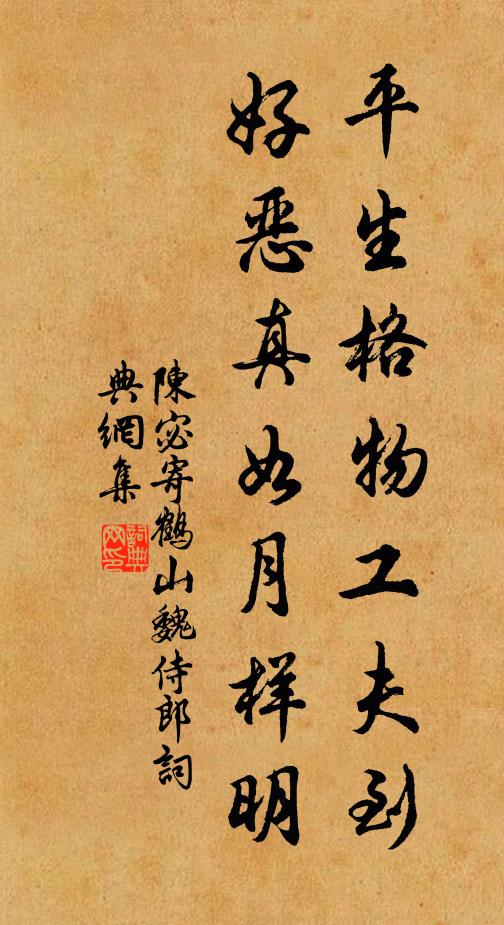 平生格物工夫到
好恶真如月样明
陳宓寄鶴山魏侍郎詞
典網集
詞典
网印